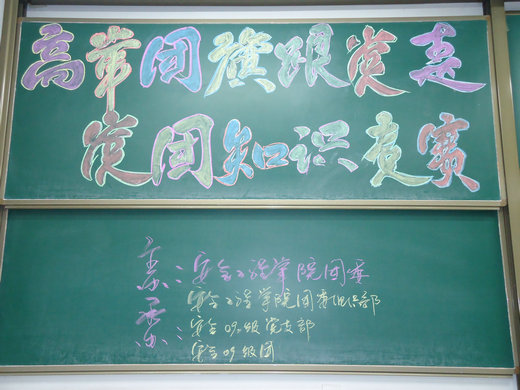 高举团旗跟党走
党团知识竞赛
主办：安全工程学院团委
承办：安全工程学院团委组织部
安全09级党支部
安全09级团